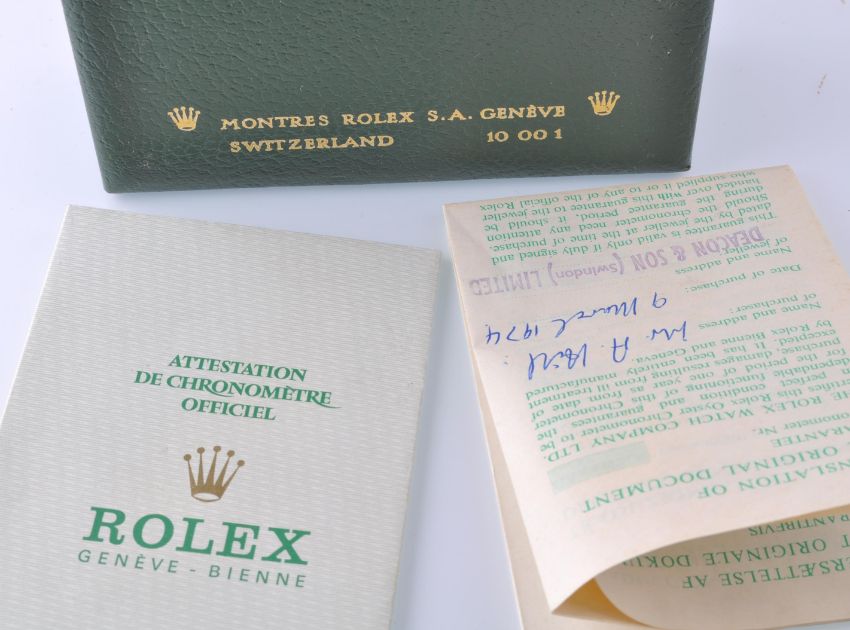 MONTRES ROLEX S.A. GENÈVE
SWITZERLAND 10 00 1
ATTESTATION
DE CHRONOMÈTRE
OFFICIEL
ROLEX
GENÈVE - BIENNE
ERSÆTTELSE AF
ORIGINALE DOKU
RANTIBEVIS
NSLATION OF
ORIGINAL DOCUMENT
ARANTEE
onometer Nr.
HE ROLEX WATCH COMPANY LTD.
ertifies this Rolex Oyster Chronometer to be
perfect functioning and guarantees the
dependable condition of this Chronometer
for the period of one year as from date of
purchase, damages resulting from ill treatment
excepted. It has been entirely manufactured
by Rolex Bienne and Geneva.
Name and address
of purchaser:
Mr A.
Date of purchase:
9 March 1974
Name and address
of jeweller:
DEACON & SON (Swindon) LIMITED
This guarantee is valid only if duly signed and
dated by the jeweller at the time of purchase.
Should the chronometer need any attention
during the guarantee period, it should be
handed over with this guarantee to the jeweller
who supplied it or to any of the official Rolex